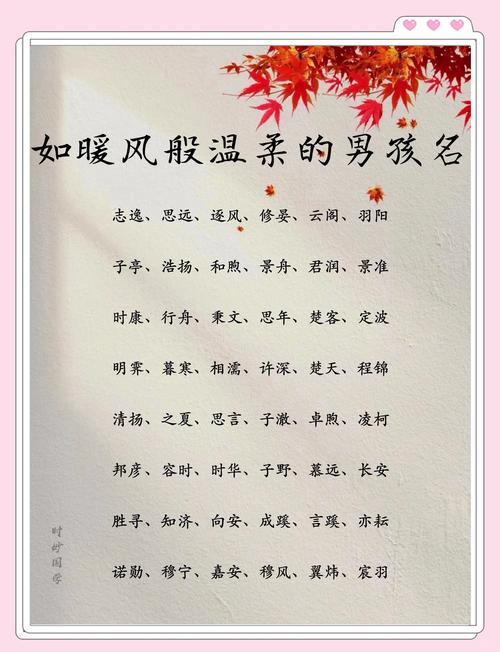 如暖风般温柔的男孩名
志逸、思远、逐风、修晏、云阁、羽阳
子亭、浩扬、和煦、景舟、君润、景准
时康、行舟、秉文、思年、楚客、定波
明霁、暮寒、相濡、许深、楚天、程锦
清扬、之夏、思言、子澈、卓煦、凌柯
邦彦、容时、时华、子野、慕远、长安
胜寻、知济、向安、成蹊、言蹊、亦耘
诺勋、穆宁、嘉安、穆风、翼炜、宸羽
时好国学